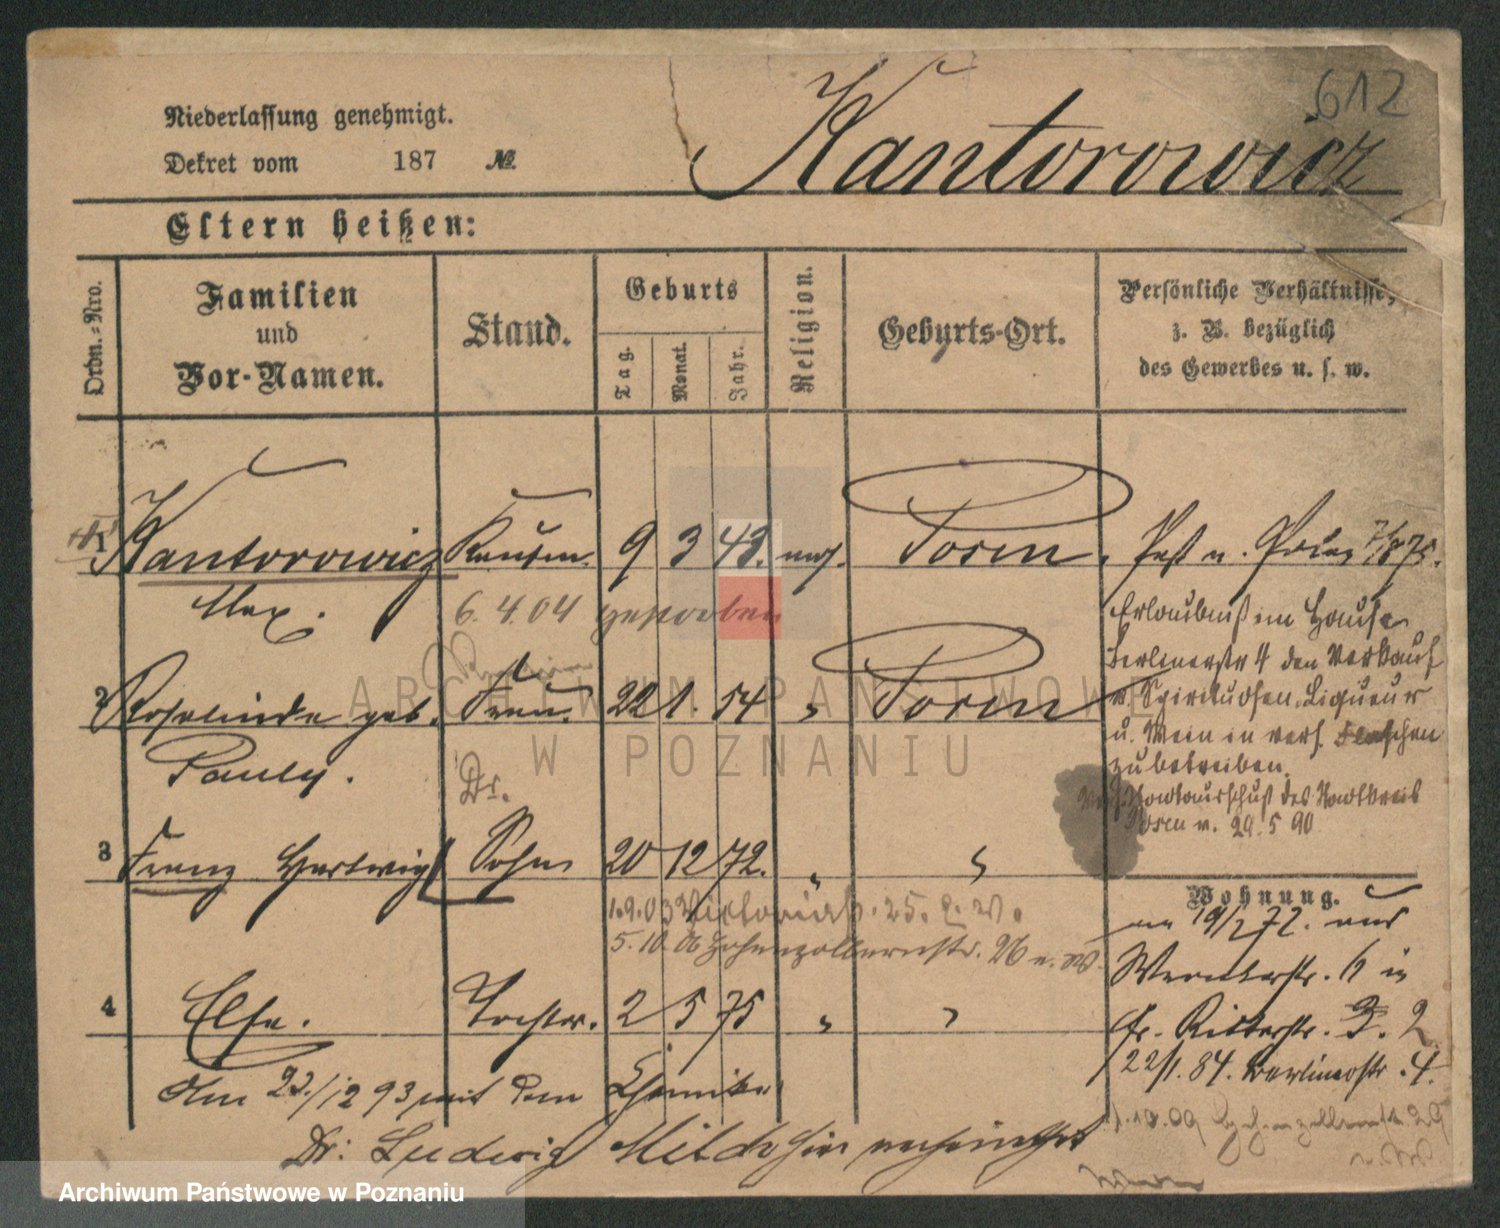 612
Niederlassung genehmigt.
Dekret vom 187 №
Kantorowicz
Eltern heißen:
Ordn.-Nro.
Familien
und
Vor-Namen.
Stand.
Geburts
Tag.
Monat.
Jahr.
Religion.
Geburts-Ort.
Persönliche Verhältnisse,
z. B. bezüglich
des Gewerbes u. s. w.
1 Kantorowicz Kaufm. 9 3 43. mos. Posen
Max.
6. 4. 04 gestorben
2 Rosalinde geb. Frau 22 1. 54 " Posen
Pauly.
Dr.
3 Franz Hartwig Sohn 20 12 72. " "
1.9.03 Victoriastr. 25. z. W.
5.10.06 Hohenzollernstr. 26 n. W.
4 Else. Tochter. 2 5 75 " "
Am 23/12 93 mit dem Chemiker
Dr. Ludwig Milch hier verheirathet
Paß n. 75.
Erlaubniß im Hause
Berlinerstr 4 den Verkauf
v. Spirituosen, Liqueur
u. Wein in vers. Flaschen
zu betreiben.
Stadtausschuß des Stadtkreis
Posen v. 29. 5 90
Wohnung.
19/2 72. aus
6 in
Ritterstr. 2
22/1. 84. Berlinerstr. 4.
1.10.09 Hohenzollernstr 29
ARCHIWUM PAŃSTWOWE
W POZNANIU
Archiwum Państwowe w Poznaniu